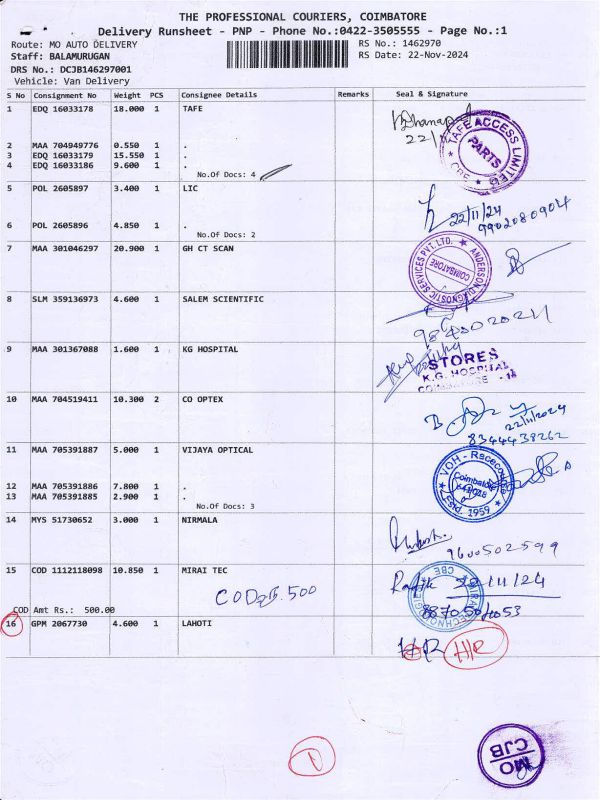 THE PROFESSIONAL COURIERS, COIMBATORE
Delivery Runsheet - PNP - Phone No.:0422-3505555 - Page No.:1
Route: MO AUTO DELIVERY RS No.: 1462970
Staff: BALAMURUGAN RS Date: 22-Nov-2024
DRS No.: DCJB146297001
Vehicle: Van Delivery
S No Consignment No Weight PCS Consignee Details Remarks Seal & Signature
1 EDQ 16033178 18.000 1 TAFE
TAFE ACCESS LIMITED
PARTS
CBE
2 MAA 704949776 0.550 1 .
3 EDQ 16033179 15.550 1 .
4 EDQ 16033186 9.600 1 .
No.Of Docs: 4
5 POL 2605897 3.400 1 LIC
22/11/24
9902080904
6 POL 2605896 4.850 1 .
No.Of Docs: 2
7 MAA 301046297 20.900 1 GH CT SCAN
ANDERSON DIAGNOSTIC SERVICES PVT. LTD.
COIMBATORE
8 SLM 359136973 4.600 1 SALEM SCIENTIFIC
9 MAA 301367088 1.600 1 KG HOSPITAL
STORES
K.G. HOSPITAL
10 MAA 704519411 10.300 2 CO OPTEX
22/11/2024
8344438262
11 MAA 705391887 5.000 1 VIJAYA OPTICAL
VOH - Racecourse
Coimbatore
641018
Estd. 1959
12 MAA 705391886 7.800 1 .
13 MAA 705391885 2.900 1 .
No.Of Docs: 3
14 MYS 51730652 3.000 1 NIRMALA
9600502599
15 COD 1112118098 10.850 1 MIRAI TEC
22/11/24
COD Amt Rs.: 500.00
16 GPM 2067730 4.600 1 LAHOTI
H/R
1
MO
CJB